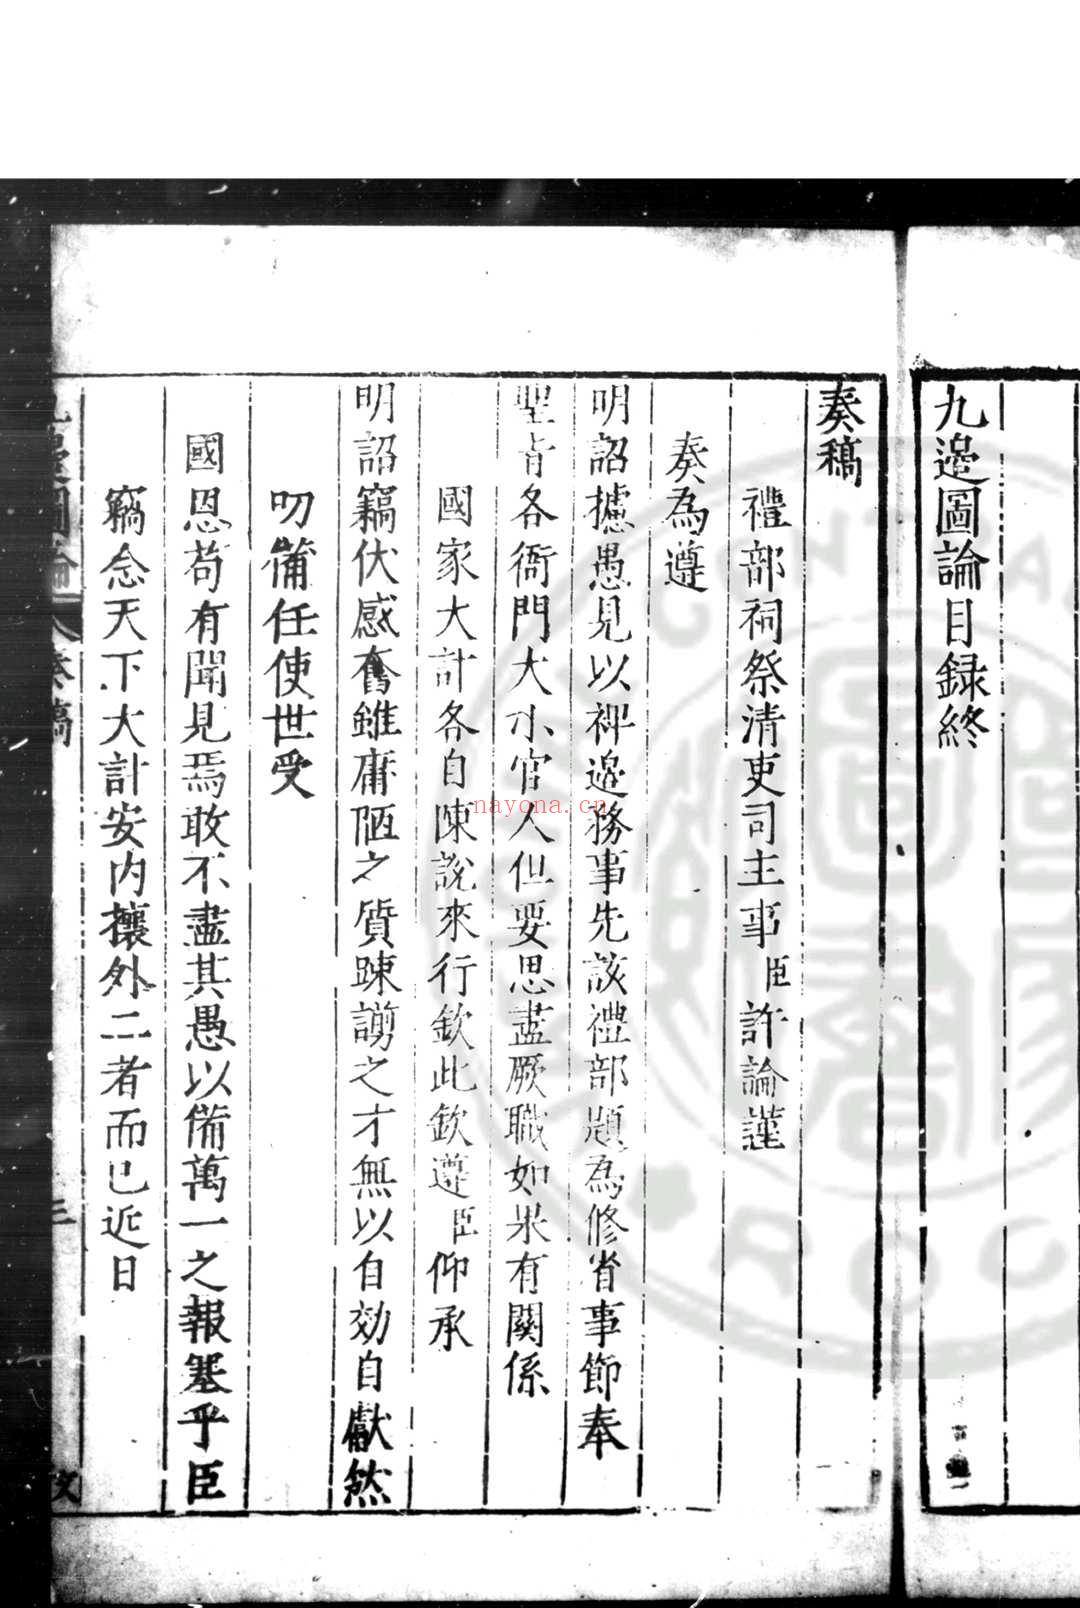 九邉圖論目録終
奏稿
禮部祠祭清吏司主事臣許論謹
奏為遵
明詔攄愚見以裨邉務事先該禮部題為修省事節奉
聖旨各衙門大小官人但要思盡厥職如果有關係
國家大計各自陳說來行欽此欽遵臣仰承
明詔竊伏感奮雖庸陋之質踈謭之才無以自効自獻然
叨備任使世受
國恩苟有聞見焉敢不盡其愚以備萬一之報塞乎臣
竊念天下大計安内攘外二者而已近日
九邉圖論 奏稿 三
nayona.cn